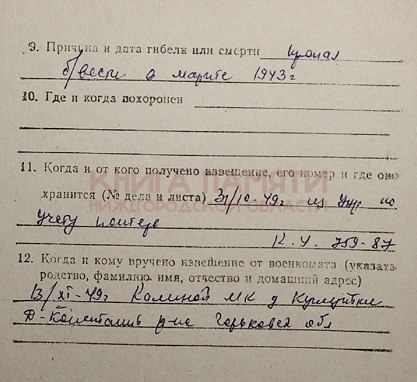 9. Причина и дата гибели или смерти пропал
б/вести в марте 1943 г
10. Где и когда похоронен
11. Когда и от кого получено извещение, его номер и где оно
хранится (№ дела и листа) 31/10-49г из Упр по
КНИГА ПАМЯТИ
НИЖЕГОРОДСКОЙ ОБЛАСТИ
учету потерь
К.У. 759-87
12. Когда и кому вручено извещение от военкомата (указать
родство, фамилию, имя, отчество и домашний адрес)
13/XI-49г МК д
Д-Константин р-на Горьковск обл